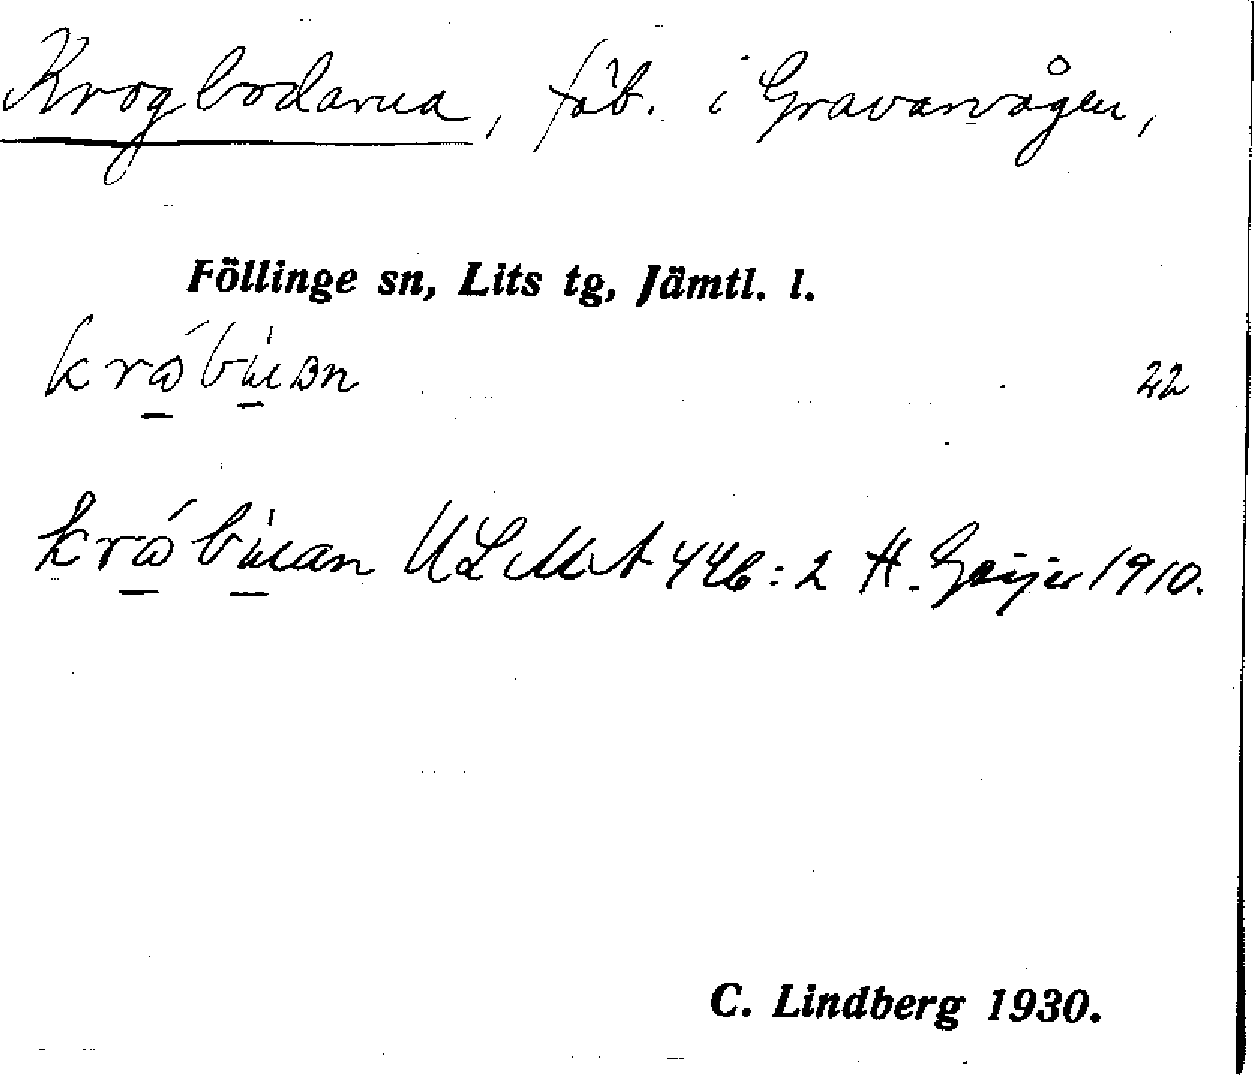 Krogbodarna, fäb. i Gravarvågen,
Föllinge sn, Lits tg, Jämtl. l.
22
ULMA 446:2 H. Geijer 1910.
C. Lindberg 1930.